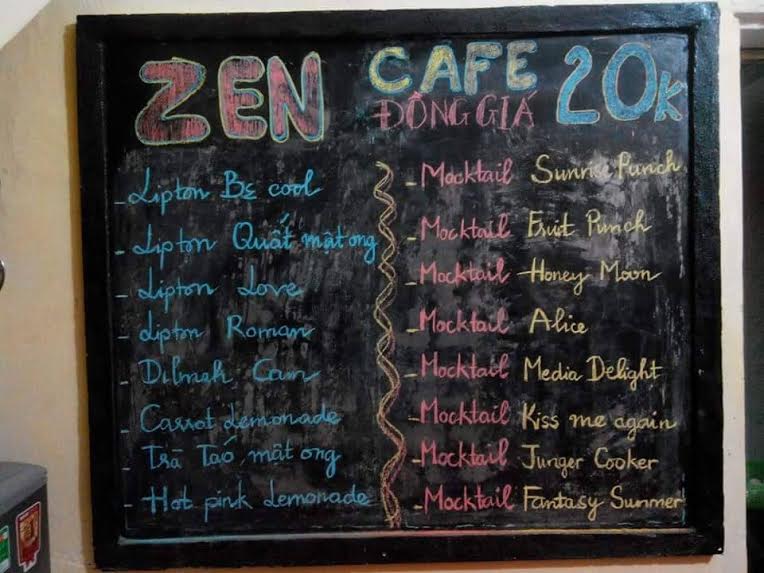 ZEN CAFE 20K
ĐỒNG GIÁ
- Lipton Be cool
- Lipton Quất mật ong
- Lipton Love
- Lipton Roman
- Dilmah Cam
- Carrot Lemonade
- Trà Táo mật ong
- Hot pink Lemonade
- Mocktail Sunrise Punch
- Mocktail Fruit Punch
- Mocktail Honey Moon
- Mocktail Alice
- Mocktail Media Delight
- Mocktail Kiss me again
- Mocktail Junger Cooker
- Mocktail Fantasy Summer